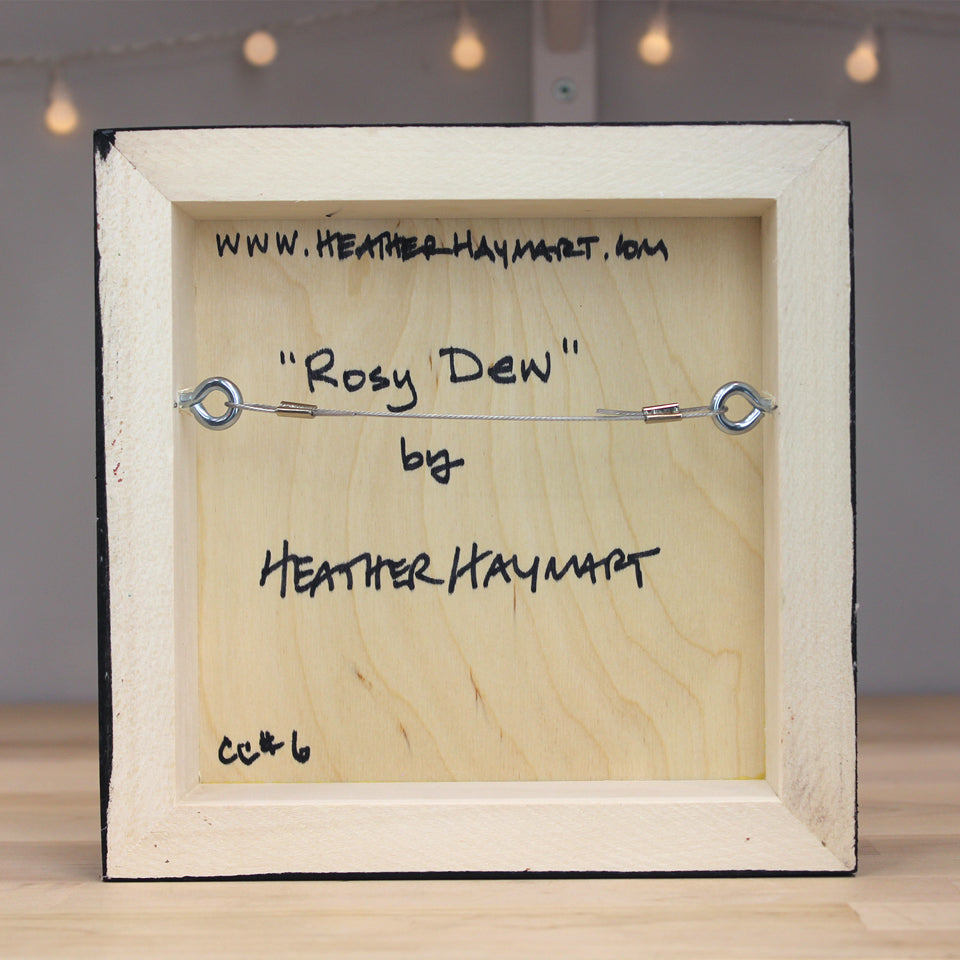 WWW.HEATHERHAYMART.COM
"Rosy Dew"
by
HEATHER HAYMART
CC# 6